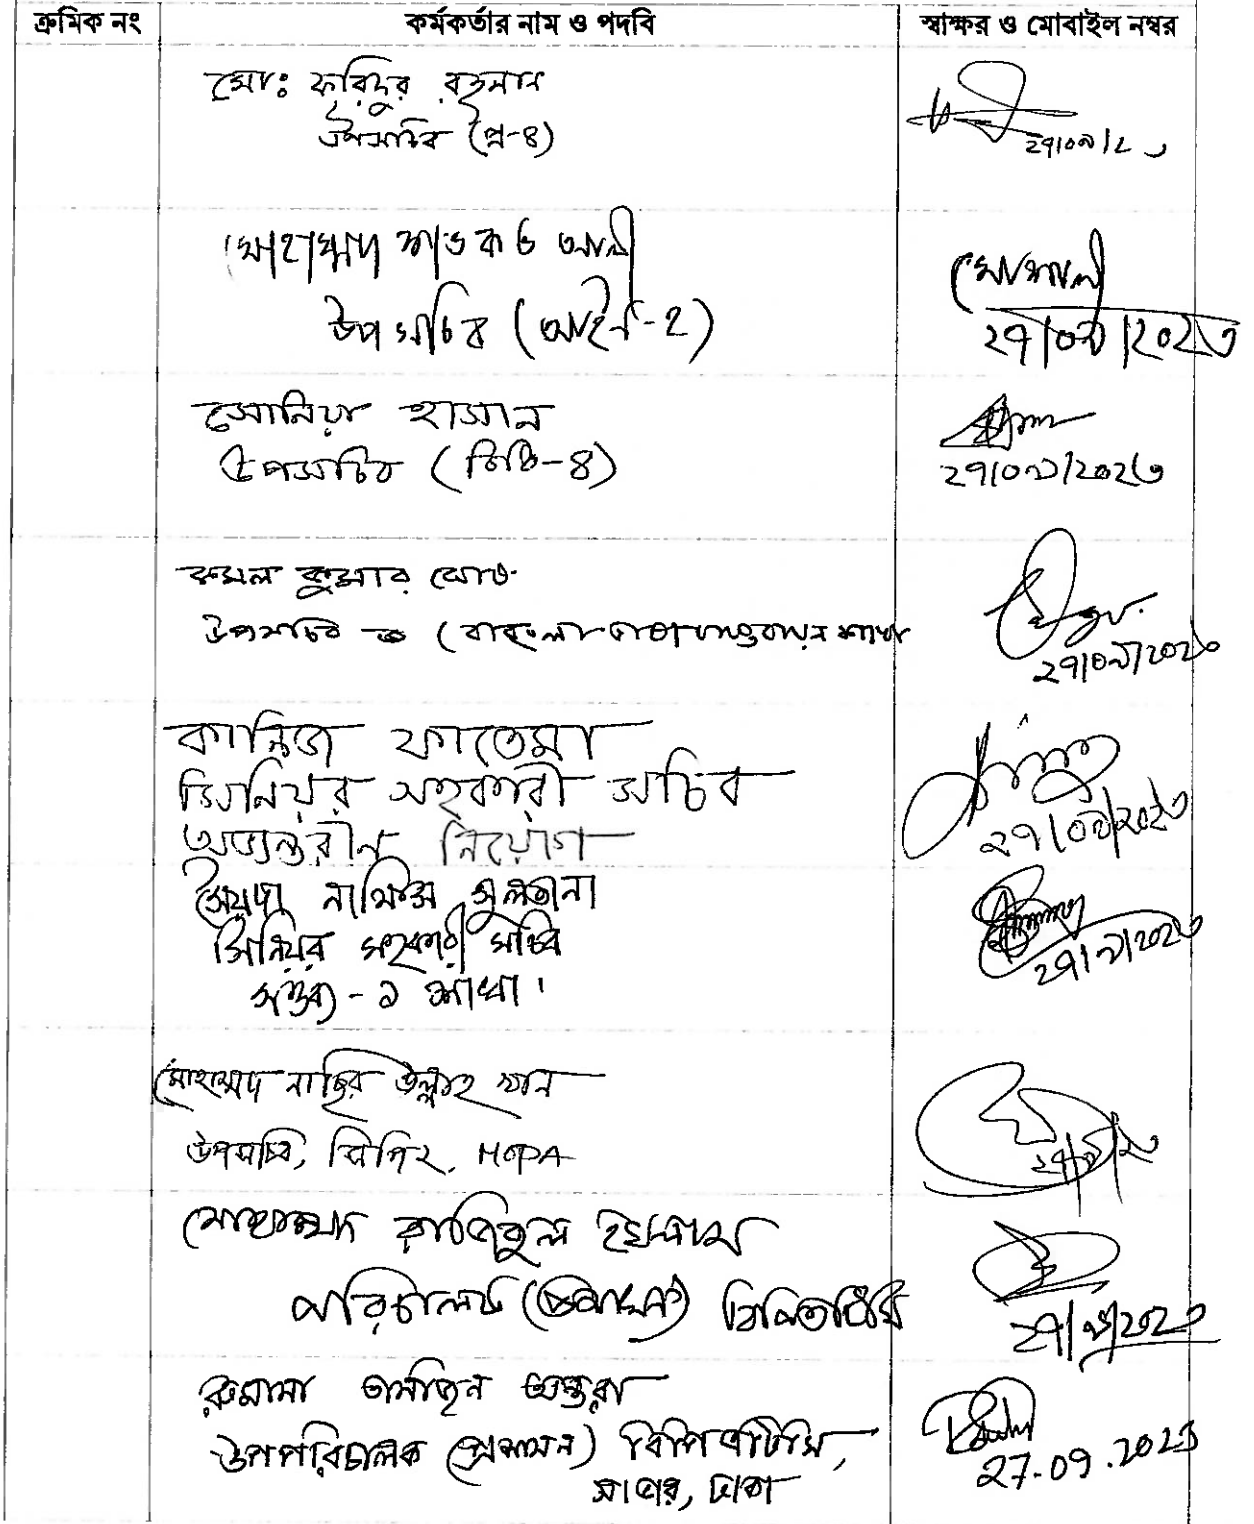 ক্রমিক নং কর্মকর্তার নাম ও পদবি স্বাক্ষর ও মোবাইল নম্বর
মোঃ ফরিদুর রহমান
উপসচিব (প্র-৪)
২৭/০৯/২
মোহাম্মদ শওকত আলী
উপসচিব (আইন-২)
২৭/০৯/২০২৩
সোনিয়া হাসান
উপসচিব (বিধি-৪)
২৭/০৯/২০২৩
কুমার
উপসচিব (বাংলা ভাষা বাস্তবায়ন শাখা
২৭/০৯/২০২৩
কানিজ ফাতেমা
সিনিয়র সহকারী সচিব
অভ্যন্তরীন নিয়োগ
২৭/০৯/২০২৩
সৈয়দা নাফিসা সুলতানা
সিনিয়র সহকারী সচিব
শাখা।
২৭/৯/২০২৩
মোহাম্মদ নাছির উল্লাহ খান
উপসচিব, MOPA
২৭/৯/২৩
মোহাম্মদ ইসলাম
পরিচালক
২৭/৯/২০২৩
রুমানা তানজিন অন্তরা
উপপরিচালক (প্রশাসন) বিপিএটিসি,
সাভার, ঢাকা
27.09.2023